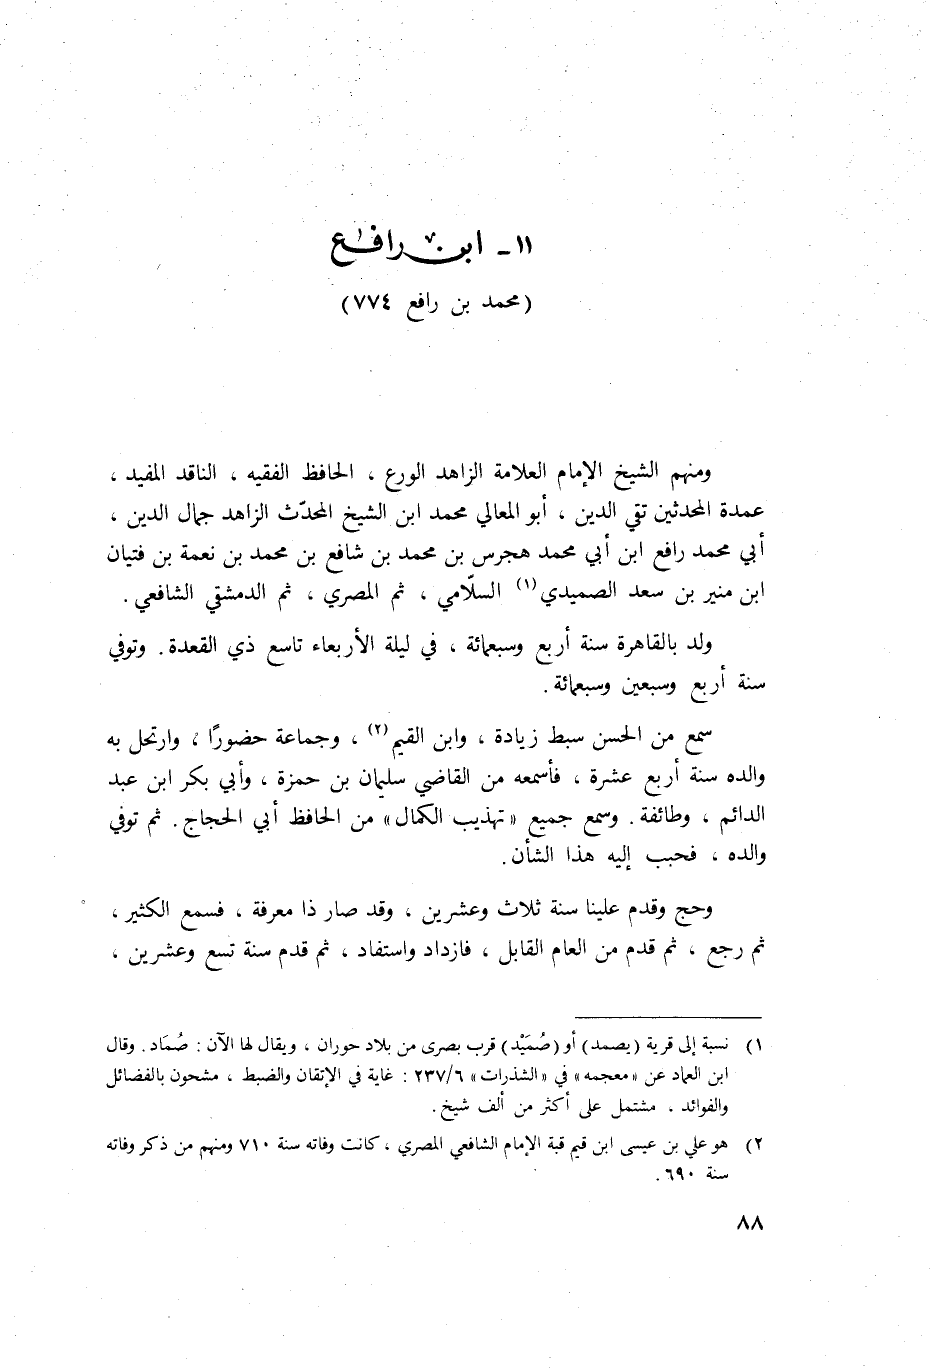 ١١ - ابن رافع
(محمد بن رافع ٧٧٤)
ومنهم الشيخ الإمام العلامة الزاهد الورع ، الحافظ الفقيه ، الناقد المفيد ،
عمدة المحدثين تقي الدين ، أبو المعالي محمد ابن الشيخ المحدّث الزاهد جمال الدين ،
أبي محمد رافع ابن أبي محمد هجرس بن محمد بن شافع بن محمد بن نعمة بن فتيان
ابن منير بن سعد الصميدي(١) السلّامي ، ثم المصري ، ثم الدمشقي الشافعي .
ولد بالقاهرة سنة أربع وسبعمائة ، في ليلة الأربعاء تاسع ذي القعدة . وتوفي
سنة أربع وسبعين وسبعمائة .
سمع من الحسن سبط زيادة ، وابن القيم(٢) ، وجماعة حضورًا ؛ وارتحل به
والده سنة أربع عشرة ، فأسمعه من القاضي سليمان بن حمزة ، وأبي بكر ابن عبد
الدائم ، وطائفة . وسمع جميع «تهذيب الكمال» من الحافظ أبي الحجاج . ثم توفي
والده ، فحبب إليه هذا الشأن .
وحج وقدم علينا سنة ثلاث وعشرين ، وقد صار ذا معرفة ، فسمع الكثير ،
ثم رجع ، ثم قدم من العام القابل ، فازداد واستفاد ، ثم قدم سنة تسع وعشرين ،
١) نسبة إلى قرية (يصمد) أو (صُمَيْد) قرب بصرى من بلاد حوران ، ويقال لها الآن : صُمَاد . وقال
ابن العماد عن «معجمه» في «الشذرات» ٢٣٧/٦ : غاية في الإتقان والضبط ، مشحون بالفضائل
والفوائد . مشتمل على أكثر من ألف شيخ .
٢) هو علي بن عيسى ابن قيم قبة الإمام الشافعي المصري ، كانت وفاته سنة ٧١٠ ومنهم من ذكر وفاته
سنة ٦٩٠ .
٨٨